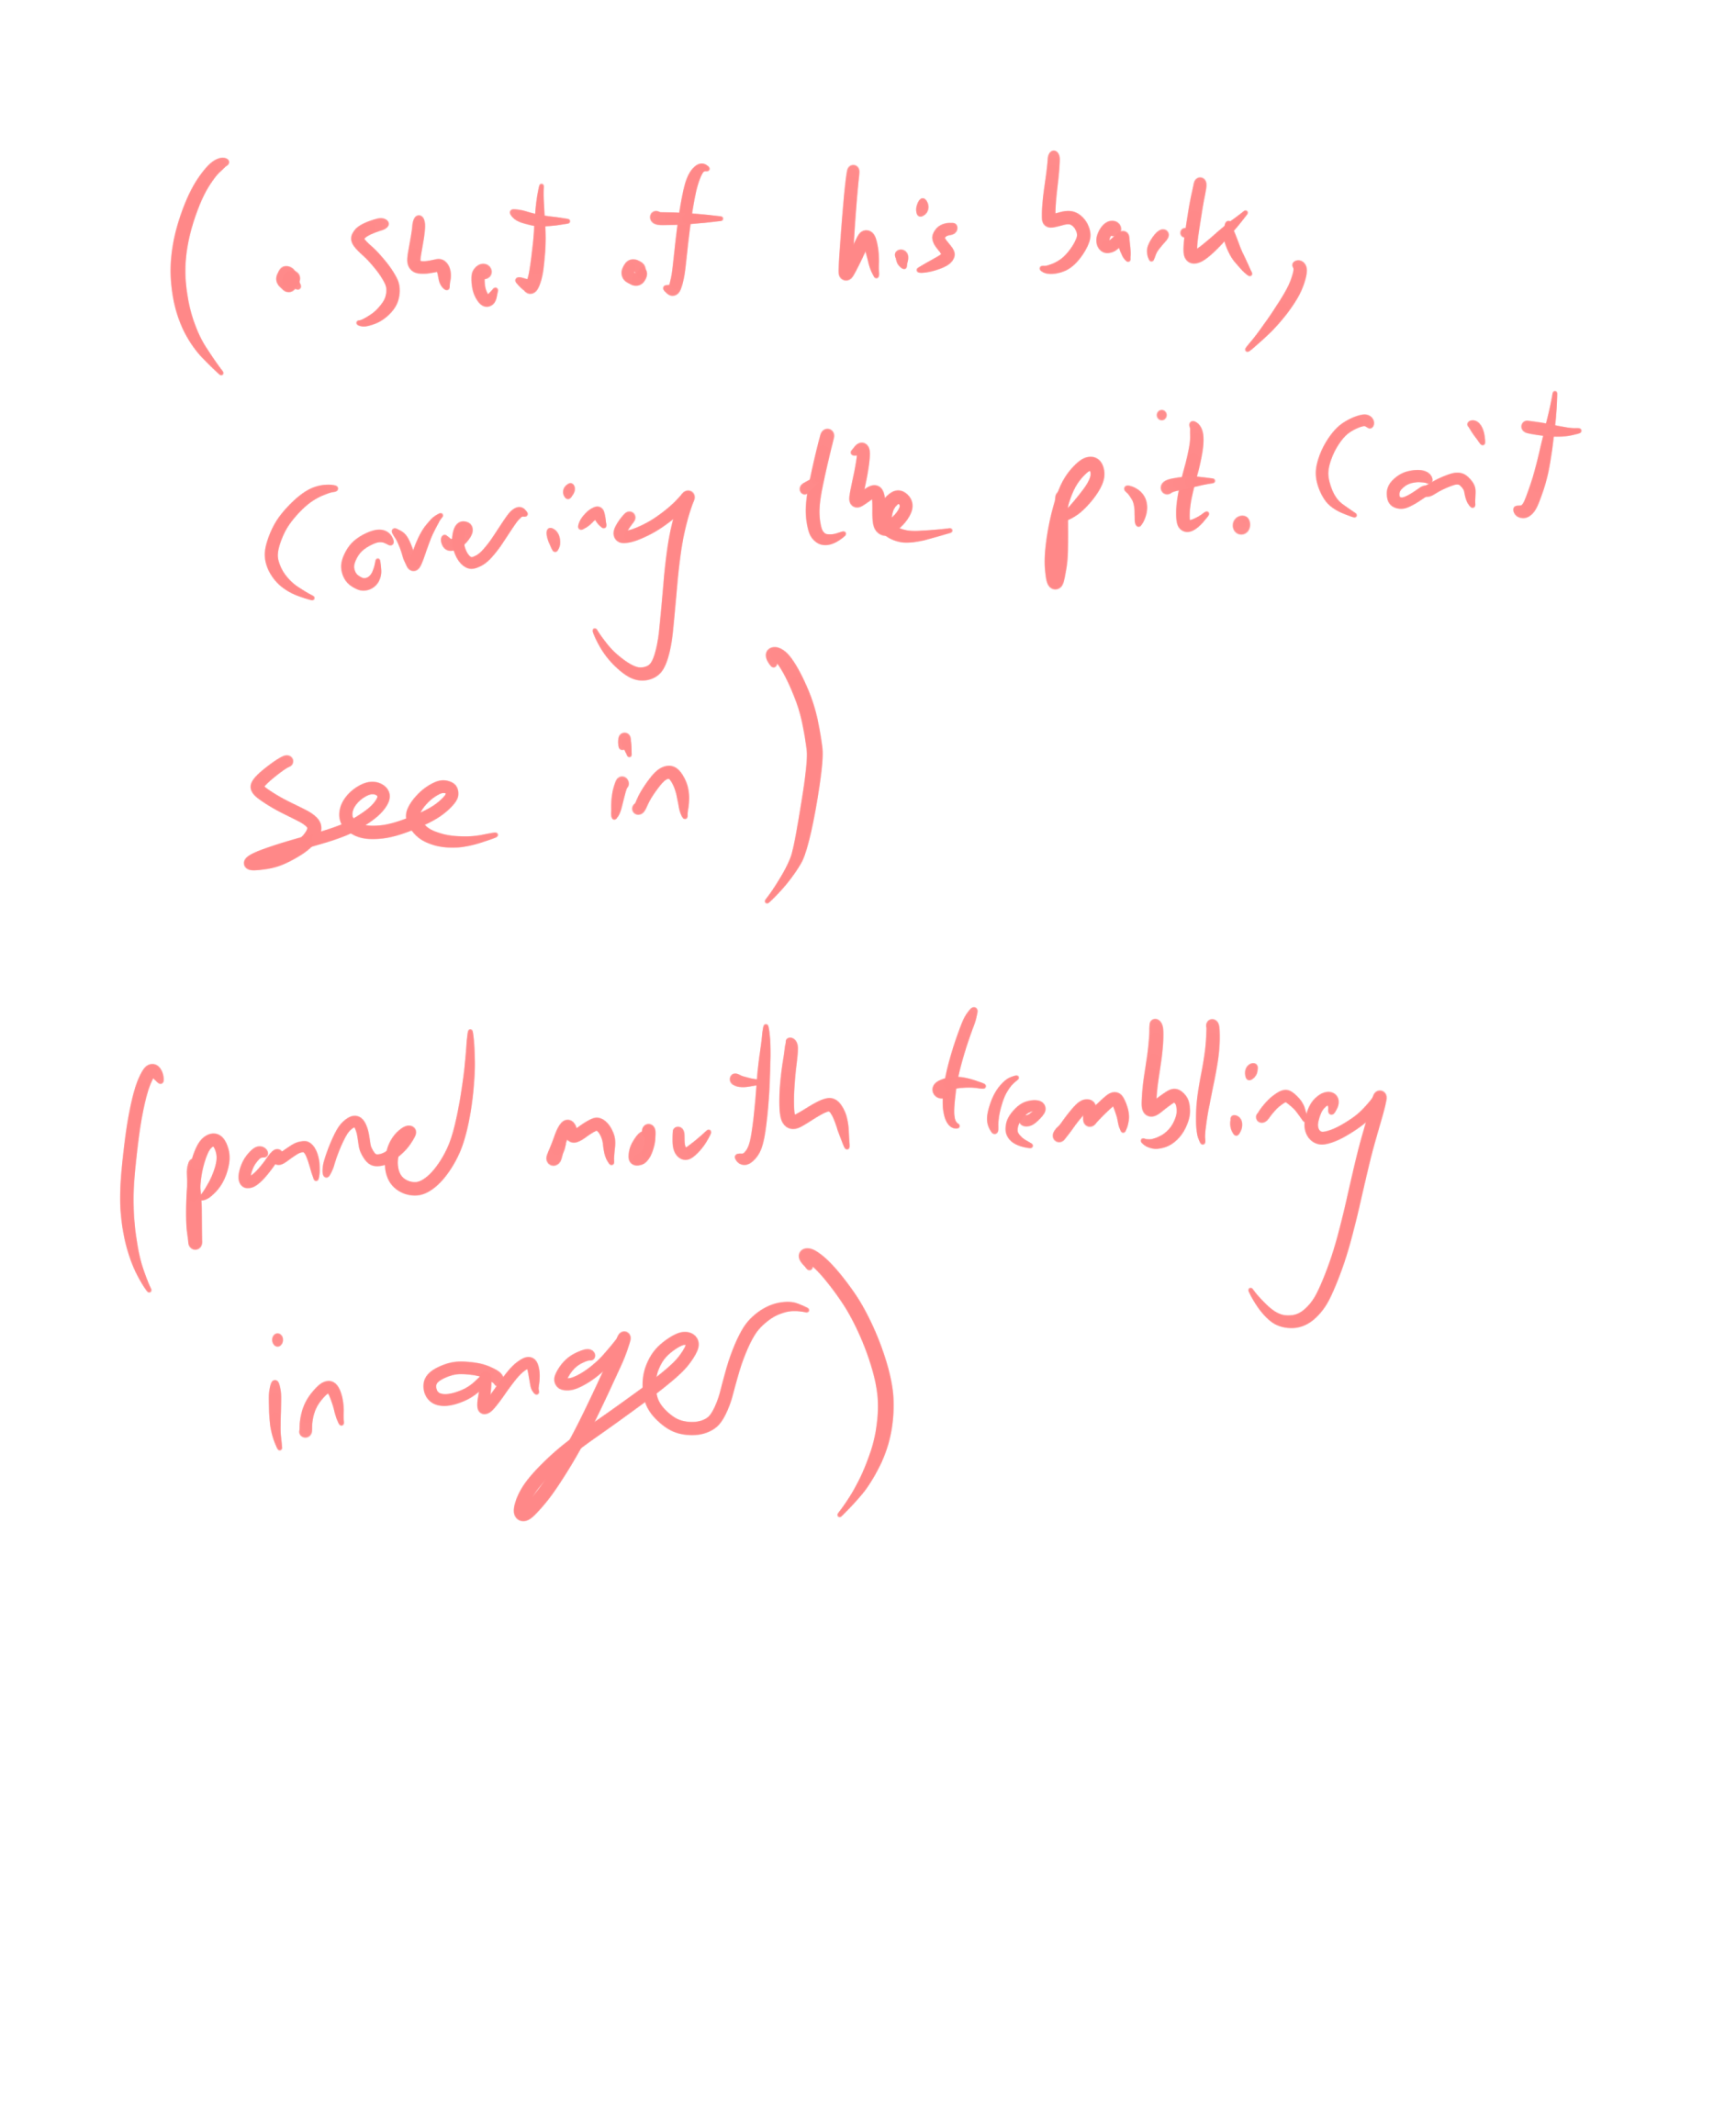 (. Shot of his back,
(covering the pit. (an't
See in)
(pand mouth trembling
in anger)